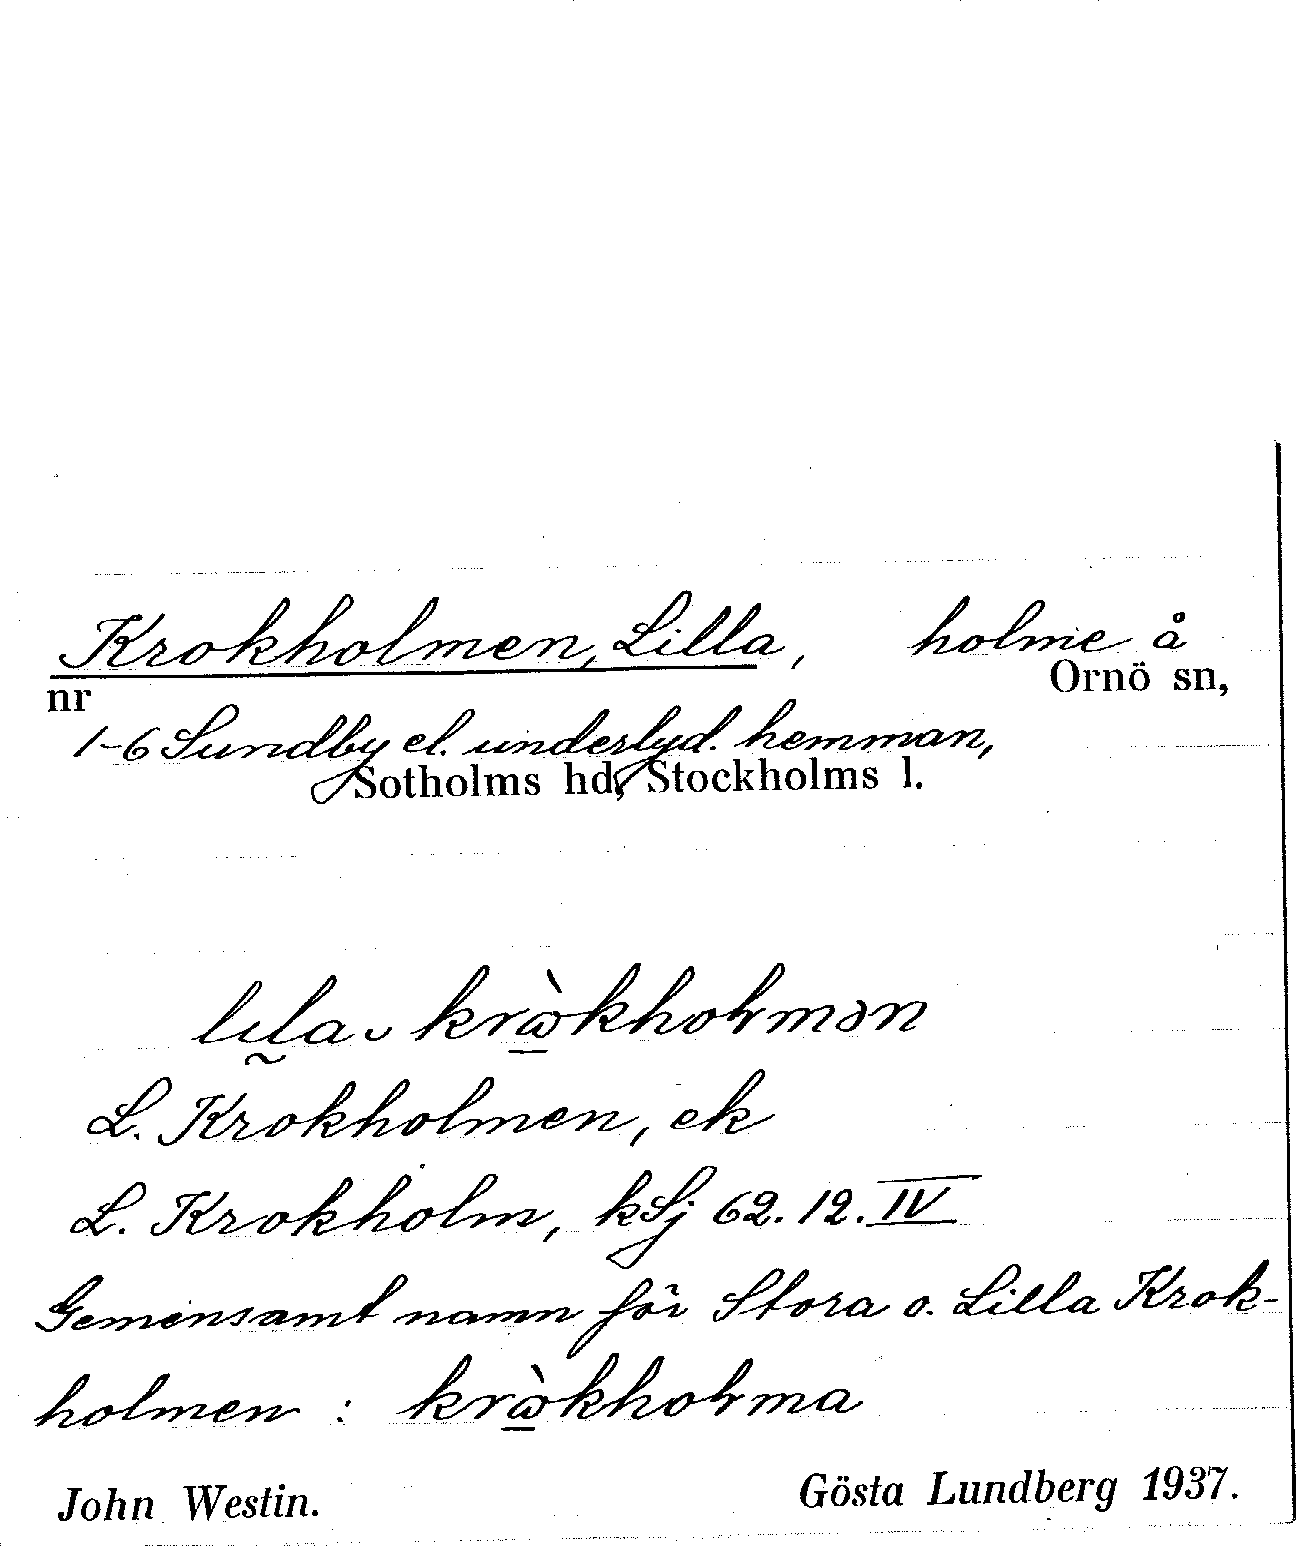 Krokholmen, Lilla, holme å
nr Ornö sn,
1-6 Sundby el. underlyd. hemman,
Sotholms hd, Stockholms l.
lıla krὼkholmən
L. Krokholmen, ek
L. Krokholm, kSj 62.12.IV
Gemensamt namn för Stora o. Lilla Krok-
holmen : krὼkholma
John Westin. Gösta Lundberg 1937.